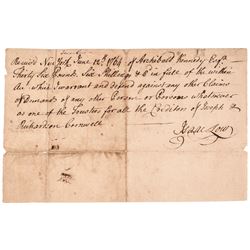 Received New York June 12th 1764 of Archibald Kennedy Esqr.
Thirty Six Pounds Six Shillings & 6d in full of the within
Acc which I warrant and defend against any other Claims
or Demands of any other Person or Persons whatsoever
as one of the Trustees for all the Creditors of Joseph &
Richardson Cornwell
Isaac Low